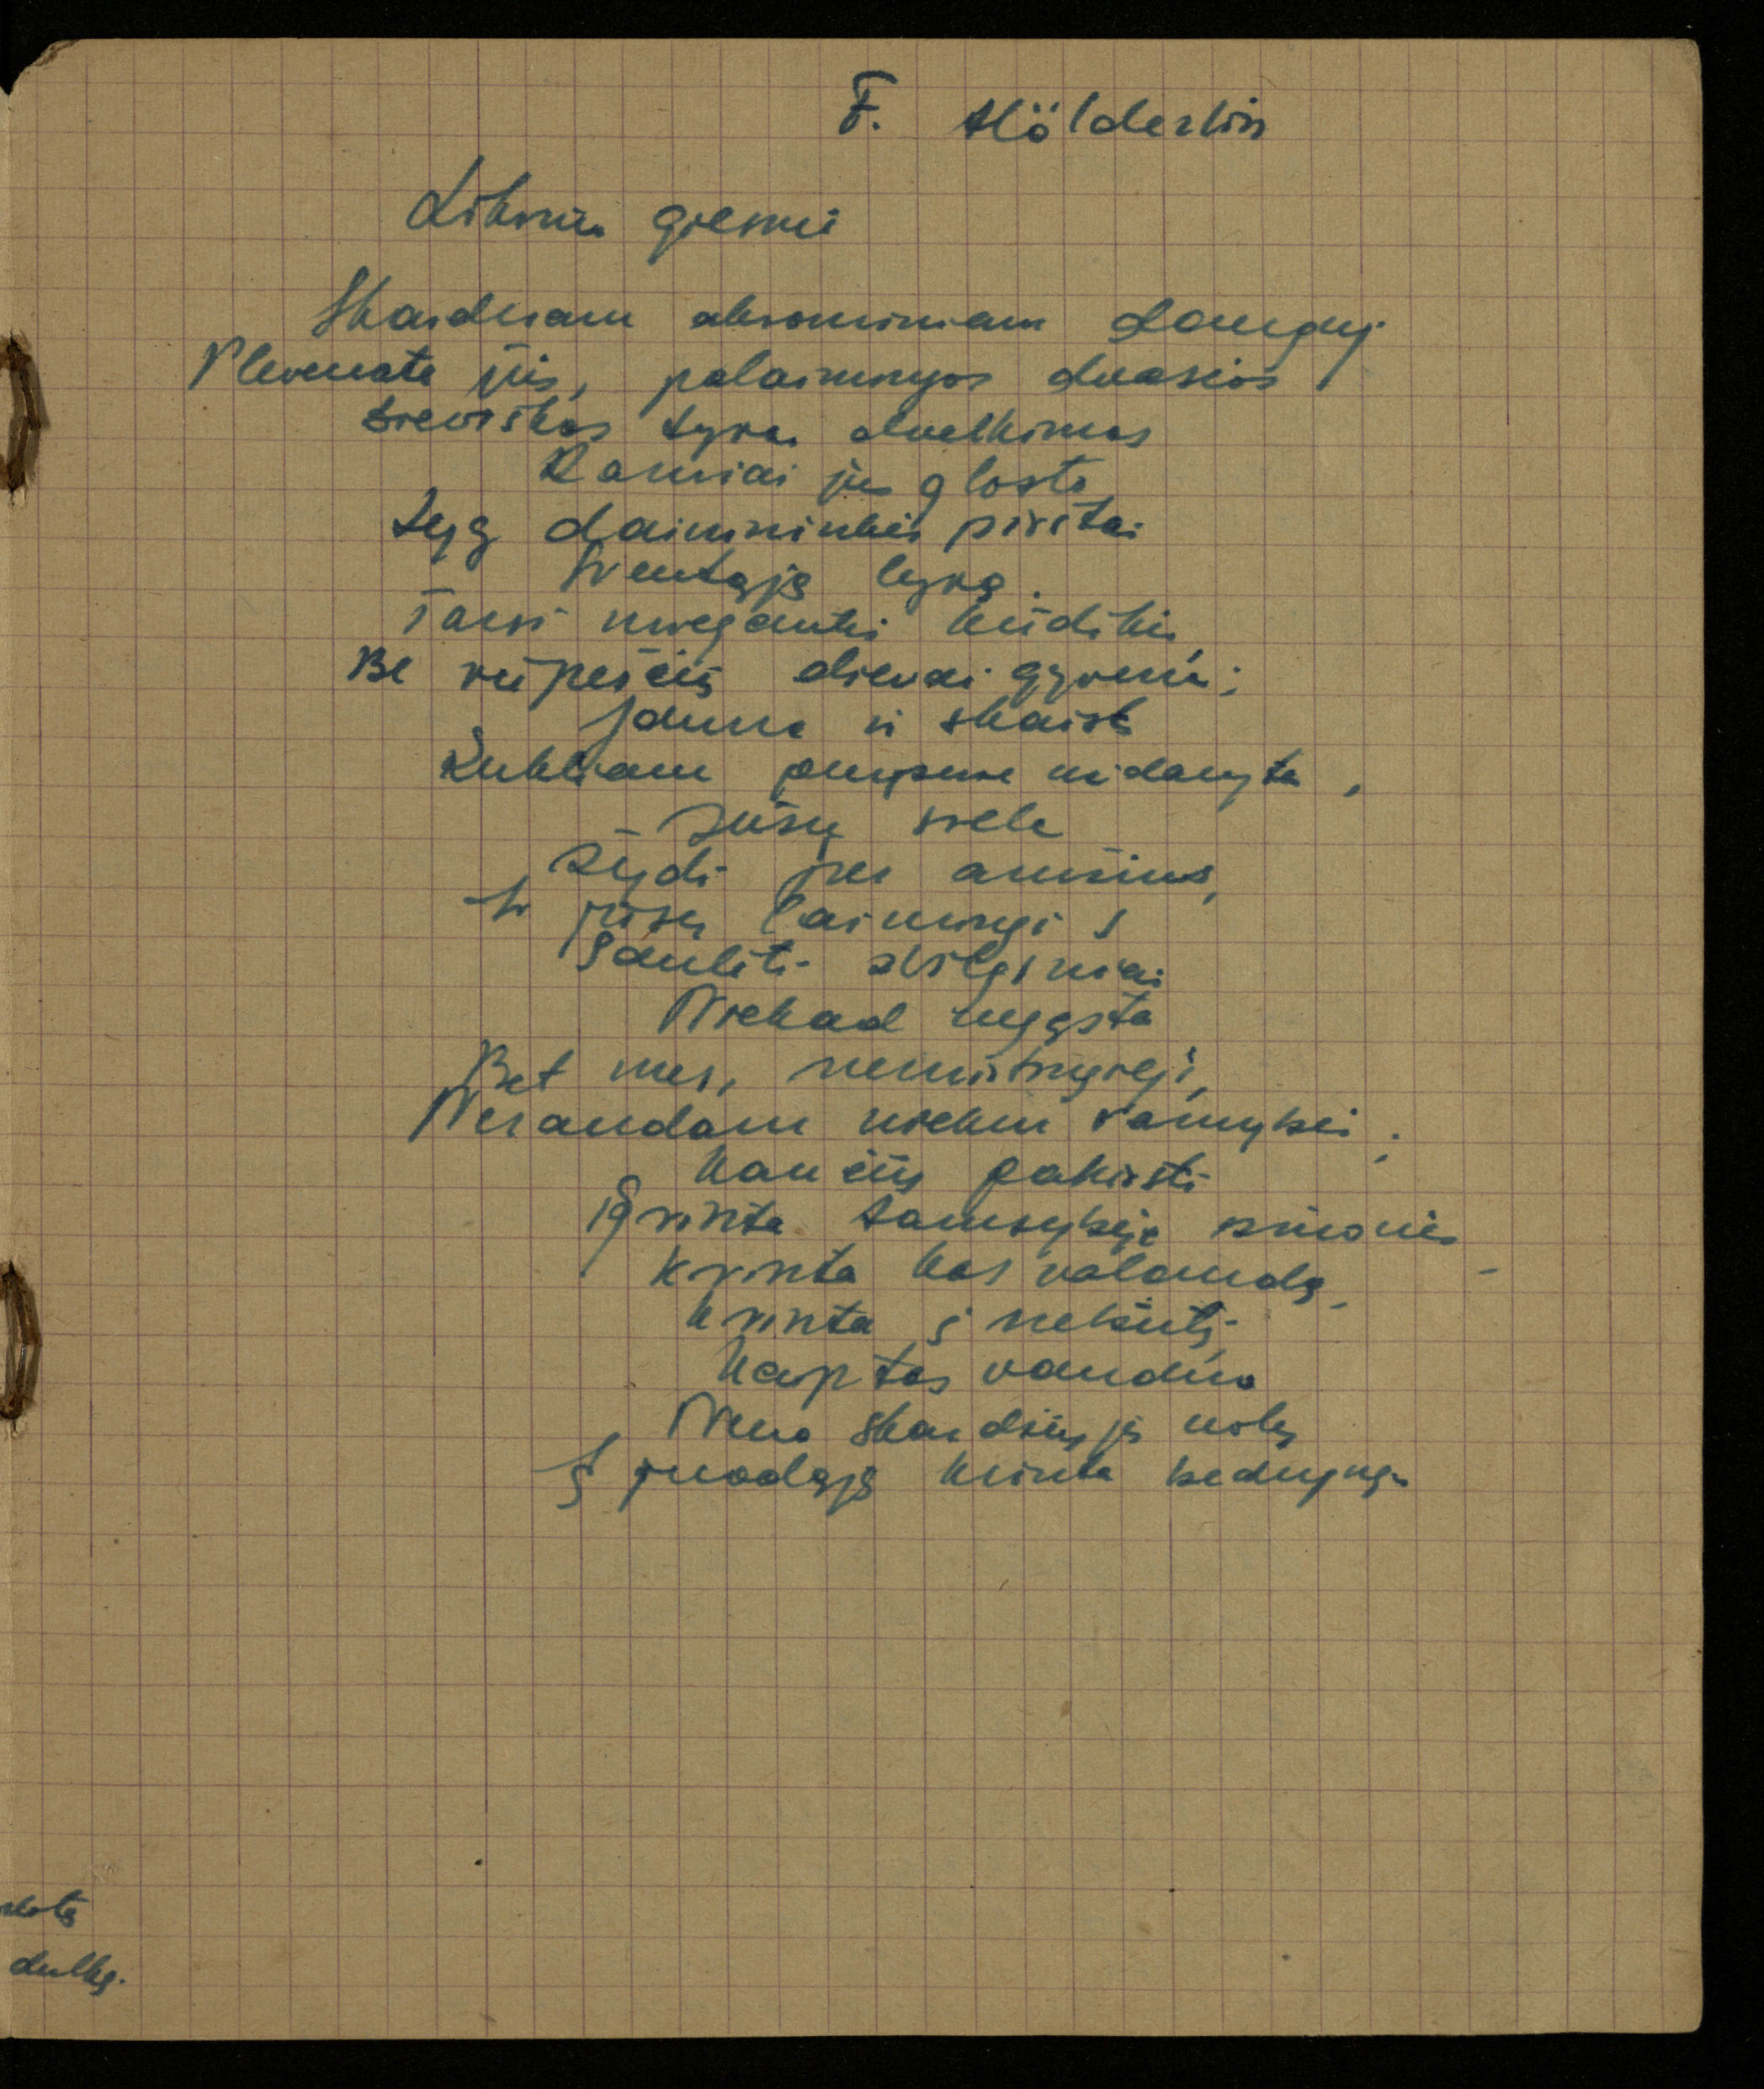 F. Hölderlin
Likimo giesmė
Skaidriam aksominiam danguj
Plevenate jūs, palaimingos dvasios
dieviškas tyras dvelkimas
Ramiai jus glosto,
Lyg dainininkės pirštai
Šventąją lyrą.
Tarsi miegantis kūdikis,
Be rūpesčių dievai gyvena;
Jauna ir skaisti
Kukliam pumpure uždaryta,
Jūsų siela
Žydi per amžius,
Ir jūsų laimingi
Saulėti žvilgsniai
Niekad negęsta
Bet mes, nemirtingieji,
Nerandam niekur ramybės;
Kančių pakirsti
krinta tamsybėje žmonės
krinta kas valandą,
krinta į nežinią
Kaip tas vanduo
Nuo skardžių jis uolų
Į juodąją krinta bedugnę.
dulkę.